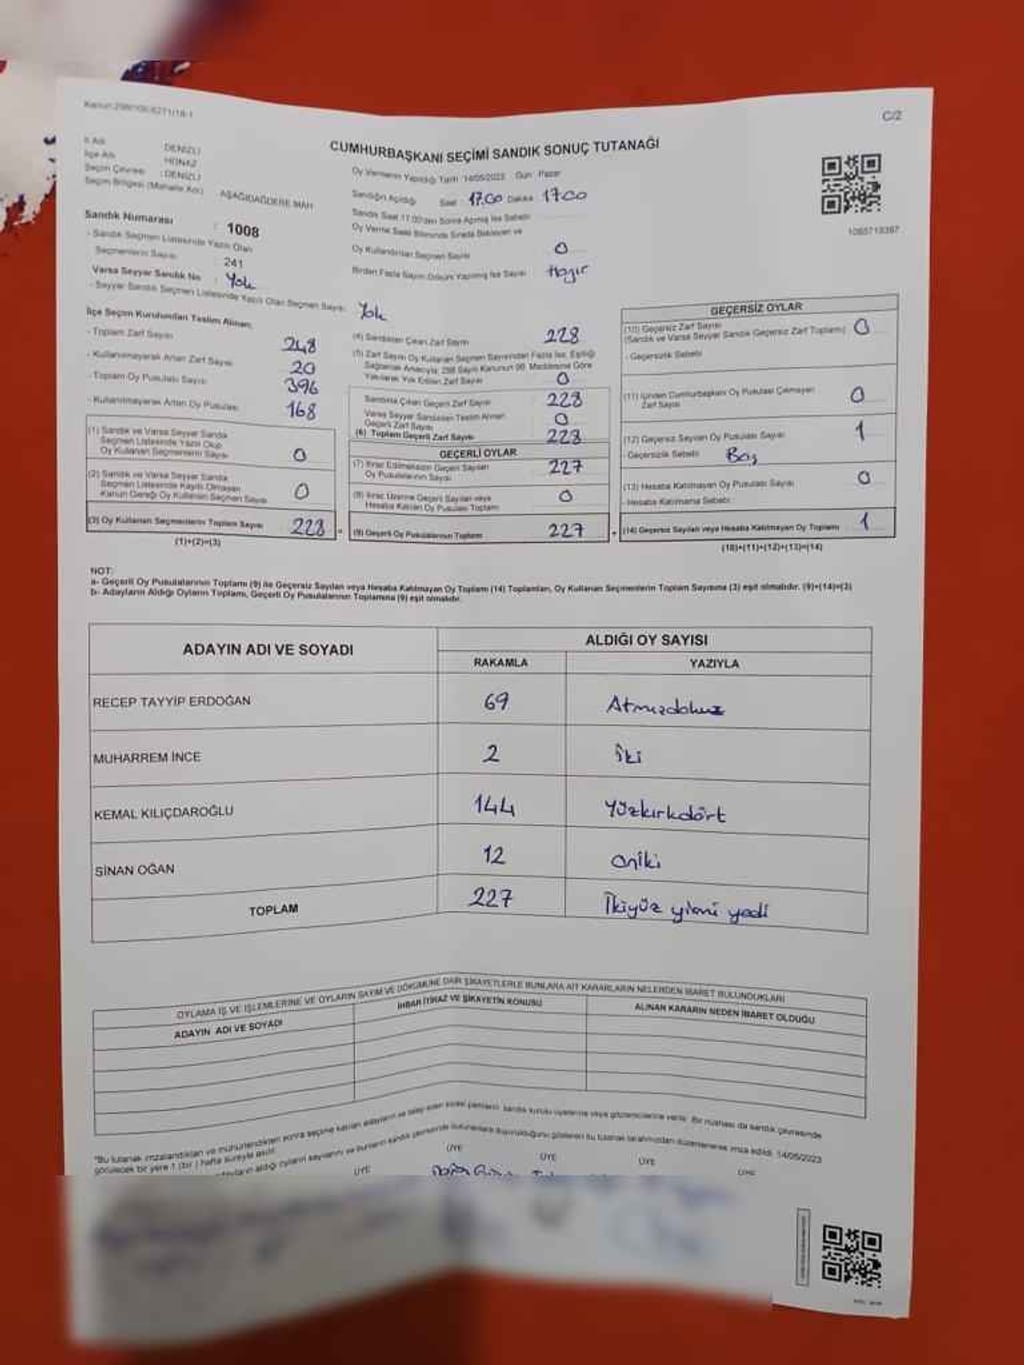 Kanun:298/105-6271/18-1
C/2
CUMHURBAŞKANI SEÇİMİ SANDIK SONUÇ TUTANAĞI
İl Adı : DENİZLİ
İlçe Adı : HONAZ
Seçim Çevresi : DENİZLİ
Seçim Bölgesi (Mahalle/Köy) : AŞAĞIDAĞDERE MAH.
Sandık Numarası : 1008
- Sandık Seçmen Listesinde Yazılı Olan
Seçmenlerin Sayısı : 241
Varsa Seyyar Sandık No : Yok
- Seyyar Sandık Seçmen Listesinde Yazılı Olan Seçmen Sayısı: Yok
Oy Vermenin Yapıldığı Tarih: 14/05/2023 Gün: Pazar
Sandığın Açıldığı Saat : 17.00 Dakika 17.00
Sandık Saat 17:00'den Sonra Açılmış İse Sebebi:
Oy Verme Saati Bitiminde Sırada Bekleyen ve
Oy Kullandırılan Seçmen Sayısı 0
Birden Fazla Sayım Döküm Yapılmış İse Sayısı: Hayır
1065719387
İlçe Seçim Kurulundan Teslim Alınan;
- Toplam Zarf Sayısı 248
- Kullanılmayarak Artan Zarf Sayısı 20
- Toplam Oy Pusulası Sayısı 396
- Kullanılmayarak Artan Oy Pusulası 168
(1) Sandık ve Varsa Seyyar Sandık
Seçmen Listesinde Yazılı Olup
Oy Kullanan Seçmenlerin Sayısı 0
(2) Sandık ve Varsa Seyyar Sandık
Seçmen Listesinde Kaydı Olmayan
Kanun Gereği Oy Kullanan Seçmen Sayısı 0
(3) Oy Kullanan Seçmenlerin Toplam Sayısı 228
(1)+(2)=(3)
(4) Sandıktan Çıkan Zarf Sayısı 228
(5) Zarf Sayısı Oy Kullanan Seçmen Sayısından Fazla İse, Eşitliği
Sağlamak Amacıyla; 298 Sayılı Kanunun 98. Maddesine Göre
Yakılarak Yok Edilen Zarf Sayısı 0
Sandıkta Çıkan Geçerli Zarf Sayısı 228
Varsa Seyyar Sandıktan Teslim Alınan
Geçerli Zarf Sayısı 0
(6) Toplam Geçerli Zarf Sayısı 228
GEÇERLİ OYLAR
(7) İtiraz Edilmeksizin Geçerli Sayılan
Oy Pusulalarının Sayısı 227
(8) İtiraz Üzerine Geçerli Sayılan veya
Hesaba Katılan Oy Pusulası Toplamı 0
(9) Geçerli Oy Pusulalarının Toplamı 227
GEÇERSİZ OYLAR
(10) Geçersiz Zarf Sayısı
(Sandık ve Varsa Seyyar Sandık Geçersiz Zarf Toplamı) 0
- Geçersizlik Sebebi:
(11) İçinden Cumhurbaşkanı Oy Pusulası Çıkmayan
Zarf Sayısı 0
(12) Geçersiz Sayılan Oy Pusulası Sayısı 1
- Geçersizlik Sebebi: Boş
(13) Hesaba Katılmayan Oy Pusulası Sayısı 0
- Hesaba Katılmama Sebebi:
(14) Geçersiz Sayılan veya Hesaba Katılmayan Oy Toplamı 1
(10)+(11)+(12)+(13)=(14)
NOT:
a- Geçerli Oy Pusulalarının Toplamı (9) ile Geçersiz Sayılan veya Hesaba Katılmayan Oy Toplamı (14) Toplamları, Oy Kullanan Seçmenlerin Toplam Sayısına (3) eşit olmalıdır. (9)+(14)=(3)
b- Adayların Aldığı Oyların Toplamı, Geçerli Oy Pusulalarının Toplamına (9) eşit olmalıdır.
ADAYIN ADI VE SOYADI ALDIĞI OY SAYISI
RAKAMLA YAZIYLA
RECEP TAYYİP ERDOĞAN 69 Atmışdokuz
MUHARREM İNCE 2 İki
KEMAL KILIÇDAROĞLU 144 Yüzkırkdört
SİNAN OĞAN 12 oniki
TOPLAM 227 İkiyüz yirmi yedi
OYLAMA İŞ VE İŞLEMLERİNE VE OYLARIN SAYIM VE DÖKÜMÜNE DAİR ŞİKAYETLERLE BUNLARA AİT KARARLARIN NELERDEN İBARET BULUNDUKLARI
ADAYIN ADI VE SOYADI İHBAR İTİRAZ VE ŞİKAYETİN KONUSU ALINAN KARARIN NEDEN İBARET OLDUĞU
14/05/2023
görülecek bir yere 1 (bir) hafta süreyle asılır.
ÜYE ÜYE ÜYE ÜYE ÜYE